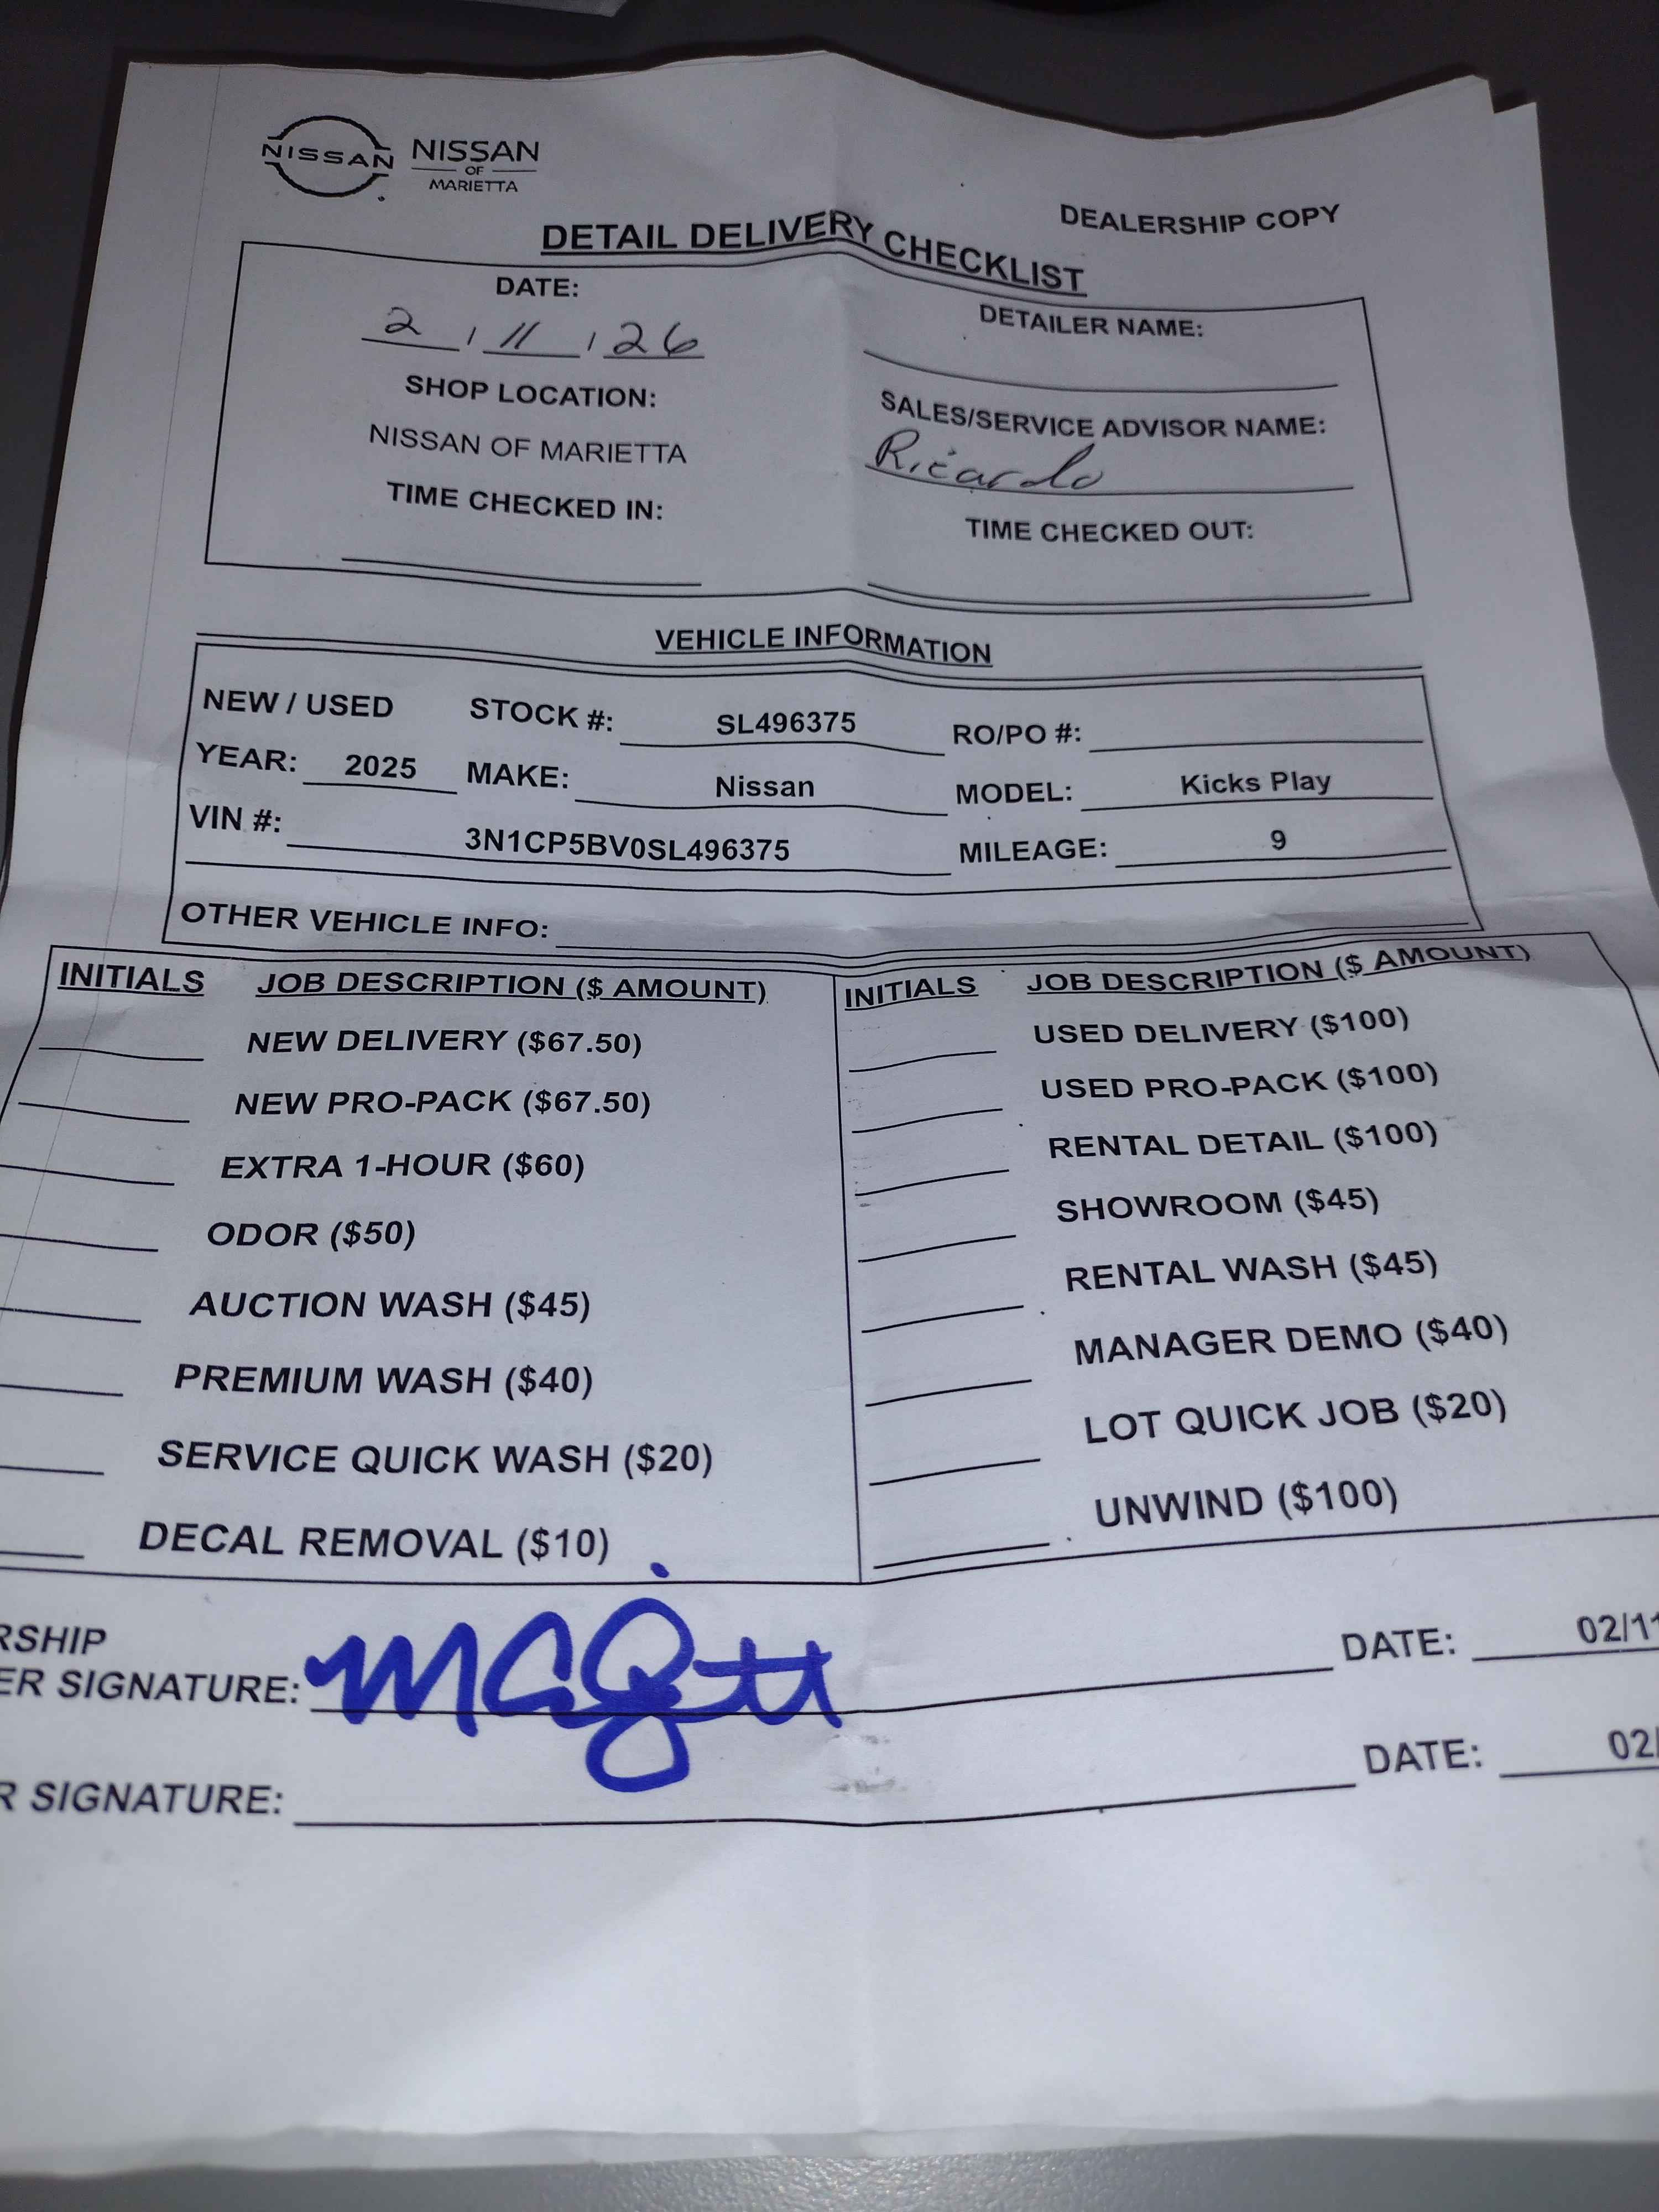 NISSAN NISSAN
OF
MARIETTA
DEALERSHIP COPY
DETAIL DELIVERY CHECKLIST
DATE:
2 / 11 / 26
DETAILER NAME:
SHOP LOCATION:
NISSAN OF MARIETTA
SALES/SERVICE ADVISOR NAME:
Ricardo
TIME CHECKED IN:
TIME CHECKED OUT:
VEHICLE INFORMATION
NEW / USED STOCK #: SL496375 RO/PO #:
YEAR: 2025 MAKE: Nissan MODEL: Kicks Play
VIN #: 3N1CP5BV0SL496375 MILEAGE: 9
OTHER VEHICLE INFO:
INITIALS JOB DESCRIPTION ($ AMOUNT) INITIALS JOB DESCRIPTION ($ AMOUNT)
NEW DELIVERY ($67.50) USED DELIVERY ($100)
NEW PRO-PACK ($67.50) USED PRO-PACK ($100)
EXTRA 1-HOUR ($60) RENTAL DETAIL ($100)
ODOR ($50) SHOWROOM ($45)
AUCTION WASH ($45) RENTAL WASH ($45)
PREMIUM WASH ($40) MANAGER DEMO ($40)
SERVICE QUICK WASH ($20) LOT QUICK JOB ($20)
DECAL REMOVAL ($10) UNWIND ($100)
RSHIP
ER SIGNATURE: DATE: 02/11
R SIGNATURE: DATE: 02/